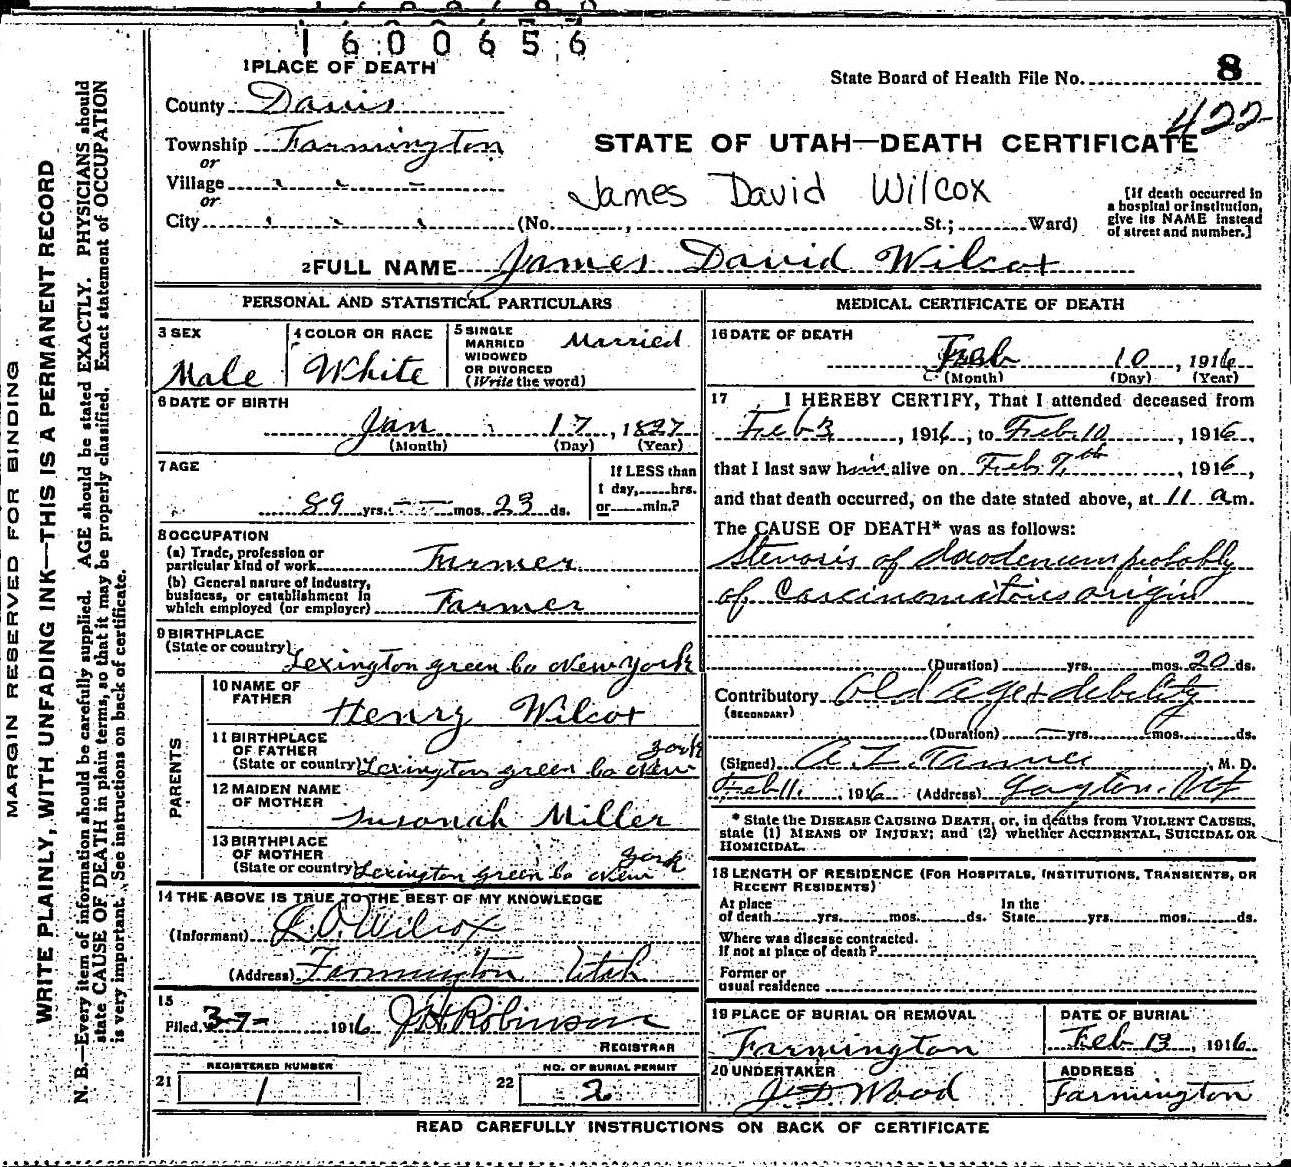 1600656
1 PLACE OF DEATH
State Board of Health File No. 8
County Davis
422
Township Farmington
STATE OF UTAH—DEATH CERTIFICATE
or
Village
James David Wilcox
or
City (No. , St.; Ward)
[If death occurred in
a hospital or institution,
give its NAME instead
of street and number.]
2 FULL NAME James David Wilcox
PERSONAL AND STATISTICAL PARTICULARS
3 SEX
Male
4 COLOR OR RACE
White
5 SINGLE
MARRIED
WIDOWED
OR DIVORCED
(Write the word)
Married
6 DATE OF BIRTH
Jan 17, 1827
(Month) (Day) (Year)
7 AGE
89 yrs. — mos. 23 ds.
If LESS than
1 day, hrs.
or min.?
8 OCCUPATION
(a) Trade, profession or
particular kind of work Farmer
(b) General nature of industry,
business, or establishment in
which employed (or employer) Farmer
9 BIRTHPLACE
(State or country) Lexington green Co New York
PARENTS
10 NAME OF
FATHER
Henry Wilcox
11 BIRTHPLACE
OF FATHER
(State or country) Lexington green Co New York
12 MAIDEN NAME
OF MOTHER
Susonah Miller
13 BIRTHPLACE
OF MOTHER
(State or country) Lexington green Co New York
14 THE ABOVE IS TRUE TO THE BEST OF MY KNOWLEDGE
(Informant) J.O. Wilcox
(Address) Farmington Utah
15
Filed 3-7- 1916 J.H. Robinson
REGISTRAR
21 REGISTERED NUMBER
1
22 NO. OF BURIAL PERMIT
2
MEDICAL CERTIFICATE OF DEATH
16 DATE OF DEATH
Feb 10, 1916
(Month) (Day) (Year)
17 I HEREBY CERTIFY, That I attended deceased from
Feb 3, 1916, to Feb. 10, 1916,
that I last saw him alive on Feb 7th, 1916,
and that death occurred, on the date stated above, at 11 a m.
The CAUSE OF DEATH* was as follows:
Stenosis of duodenum probably
of Carcinomatous origin
(Duration) yrs. mos. 20 ds.
Contributory Old age & debility
(SECONDARY)
(Duration) yrs. mos. ds.
(Signed) A. Z. Tanner, M. D.
Feb 11, 1916 (Address) Layton, Ut
* State the DISEASE CAUSING DEATH, or, in deaths from VIOLENT CAUSES,
state (1) MEANS OF INJURY; and (2) whether ACCIDENTAL, SUICIDAL OR
HOMICIDAL.
18 LENGTH OF RESIDENCE (FOR HOSPITALS, INSTITUTIONS, TRANSIENTS, OR
RECENT RESIDENTS)
At place
of death yrs. mos. ds.
In the
State yrs. mos. ds.
Where was disease contracted.
If not at place of death?
Former or
usual residence
19 PLACE OF BURIAL OR REMOVAL
Farmington
DATE OF BURIAL
Feb 13, 1916
20 UNDERTAKER
J. D. Wood
ADDRESS
Farmington
READ CAREFULLY INSTRUCTIONS ON BACK OF CERTIFICATE
MARGIN RESERVED FOR BINDING
WRITE PLAINLY, WITH UNFADING INK—THIS IS A PERMANENT RECORD
N. B.—Every item of information should be carefully supplied. AGE should be stated EXACTLY. PHYSICIANS should
state CAUSE OF DEATH in plain terms, so that it may be properly classified. Exact statement of OCCUPATION
is very important. See instructions on back of certificate.